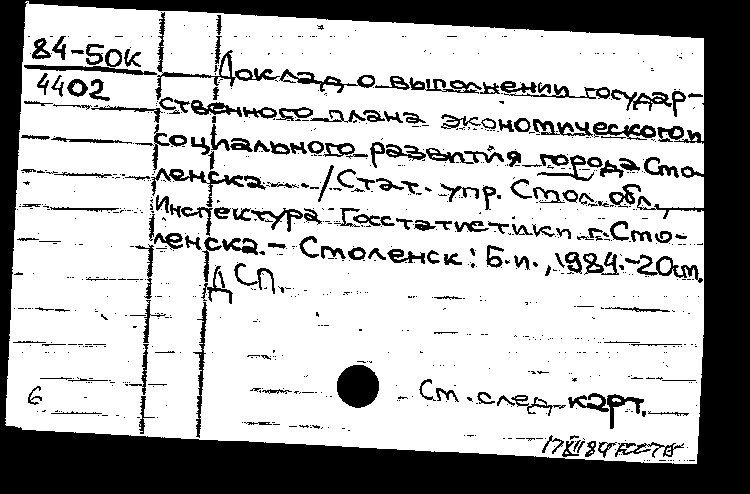 84-50к
4402
Доклад о выполнении государ-
ственного плана экономического и
социального развития города Смо-
ленска ... / Стат. упр. Смол. обл.,
Инспектура Госстатистики г. Смо-
ленска. – Смоленск : Б.и., 1984. – 20 см.
ДСП.
См. след. карт.
6